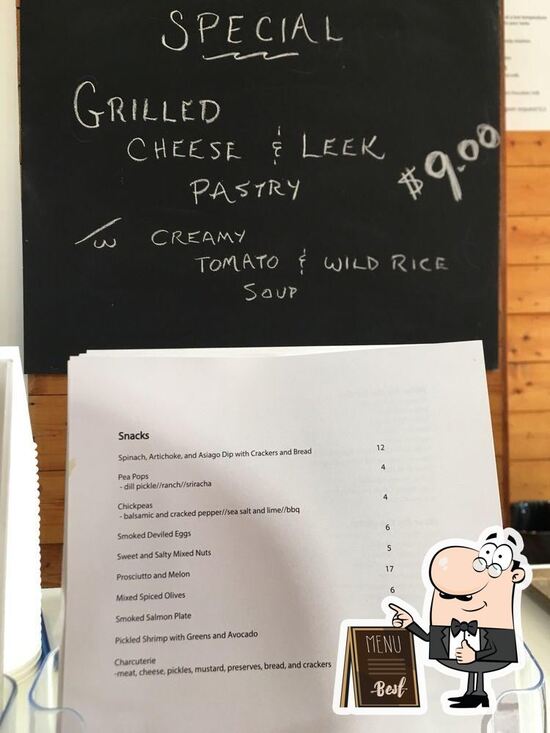 SPECIAL
GRILLED
CHEESE & LEEK
PASTRY
$9.00
/w CREAMY
TOMATO & WILD RICE
SOUP
Snacks
Spinach, Artichoke, and Asiago Dip with Crackers and Bread 12
Pea Pops 4
- dill pickle//ranch//sriracha
Chickpeas 4
- balsamic and cracked pepper//sea salt and lime//bbq
Smoked Deviled Eggs 6
Sweet and Salty Mixed Nuts 5
Prosciutto and Melon 17
Mixed Spiced Olives 6
Smoked Salmon Plate
Pickled Shrimp with Greens and Avocado
Charcuterie
-meat, cheese, pickles, mustard, preserves, bread, and crackers
MENU
Best